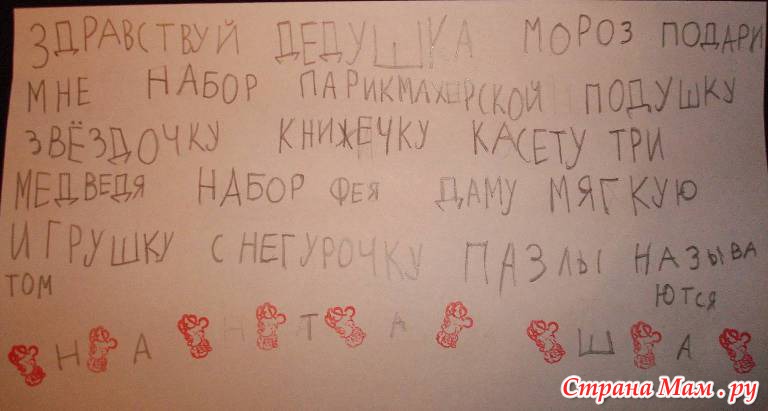 ЗДРАВСТВУЙ ДЕДУШКА МОРОЗ ПОДАРИ
МНЕ НАБОР ПАРИКМАХЕРСКОЙ ПОДУШКУ
ЗВЁЗДОЧКУ КНИЖЕЧКУ КАСЕТУ ТРИ
МЕДВЕДЯ НАБОР ФЕЯ ДАМУ МЯГКУЮ
ИГРУШКУ СНЕГУРОЧКУ ПАЗЛЫ НАЗЫВА
ТОМ ЮТСЯ
Н А Н Т А Ш А
Страна Мам.ру